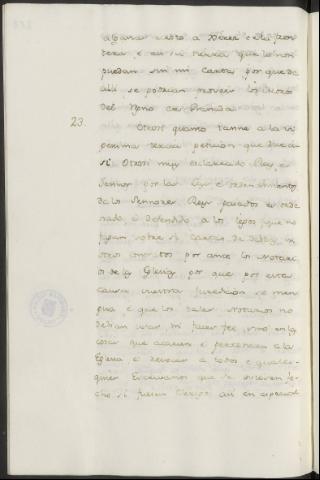 alguna cerca a Xerez e ala fron
tera e en su tierra que lo non
puedan sin mi carta por que de
alli se podrian proveer los moros
del Reyno de Granada
23. Otrosi quanto tanne a la vi
gesima tercia peticion que dize a
si. Otrosi muy esclarecido Rey, e
Señor por las Leyes e ordenamientos
de los Señores Reyes pasados es orde
nado, e defendido a los legos que no
fagan sobre si cartas de debdos, ni
otros contratos por ante los Notari
os de la Iglesia, por que por esta
causa vuestra juredicion se men
gua, e que los tales Notarios no
debian usar, ni facer fee, sino en las
cosas que acaecen e pertenecen a la
Eglesia e revocar a todos e quales
quier Escrivanos que se oviesen fe
cho si fueren Clerigos asi en especial